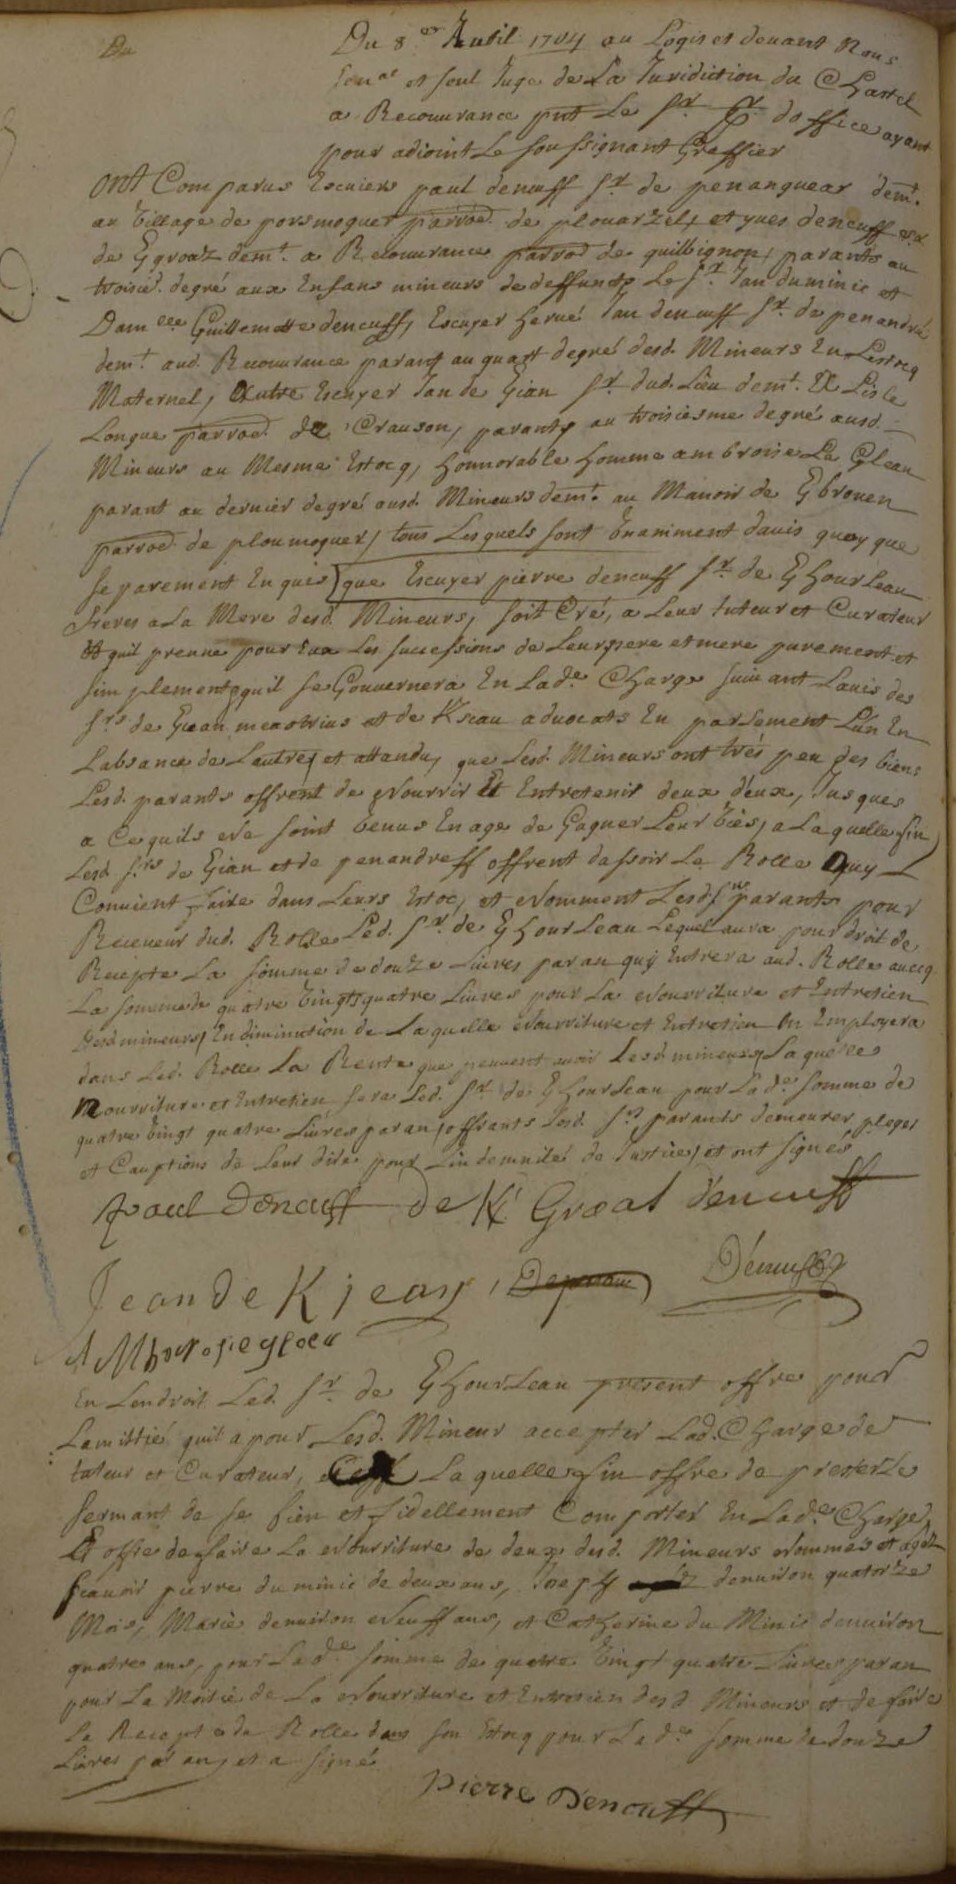 Du
Du 8.er Auril 1704 au Logis et deuant Nous
Sen.al et seul Juge de La Juridiction du Chastel
a Recouurance pnt Le Sr. Pr. doffice ayant
pour adioint Le soussignant Greffier
ont Comparus Escuiers paul deneuff Sr. de penanguear demt.
au Village de porsmoguer parroe. de plouarzel, et yues deneuff Sr.
de Kgroaz demt. a Recouurance parroe de quilbignon, parants au
troisie. degré aux Enfans mineurs de deffuncts Le Sr. Jan duminic et
Damelle Guillemette deneuff, Escuyer herué Jan deneuff Sr. de penandreff
demt. aud. Recouurance parant au quart degré desd. Mineurs En Lestocq
Maternel, Autre Escuyer Jan de Kjan Sr. dud. Lieu demt. A Lisle
Longue parroe. de Crauson, parants au troisiesme degré ausd.
Mineurs au Mesme Estocq, honnorable homme ambroise Le Glean
parant au dernier degré ausd. Mineurs demt. au Manoir de Kbrouen
parroe. de ploumoguer, tous Lesquels sont Vnamiment dauis quoy que
separement Enquis que Escuyer pierre deneuff Sr. de Khourleau
freres a La Mere desd. Mineurs, soit Cré, a Leur tuteur et Curateur
Et quil prenne pour Eux Les successions de Leurs pere et mere purement et
simplement, quil se Gouuernera En Lade. Charge suiuant Lauis des
Srs de Kjean meastrius et de Kscau aduocats En parlement Lun En
Labsance de Lautre, et attandu, que Lesd. Mineurs ont trés peu des biens
Lesd. parants offrent de Nourrir Et Entretenir deux deux, Jusques
a Ce quils Ne soint Venus En age de Gagner Leur Vies, a Laquelle fin
Lesd. Srs de Kjan et de penandreff offrent dassoir Le Rolle Quy
Conuient faire dans Leurs Estoc, et Nomment Lesd. Srs parants pour
Receueur dud. Rolle Led. Sr. de Khourleau Lequel aura pour droit de
Recepte La somme de douze Liures par an quy Entrera aud. Rolle auecq
La somme de quatre Vingts quatre Liures pour La Nourriture et Entretien
Desd mineurs, En diminution de Laquelle Nourriture et Entretien on Employera
dans Led. Rolle La Rente que peuuent auoir Lesd mineurs, Laquelle
Nourriture et Entretien fera Led. Sr. de Khourleau pour Lade somme de
quatre Vingt quatre Liures par an, offrants Lesd. Srs parants demeurer pleges
et Cauptions de Leur dire pour Lindemnité de Justice, et ont signés
Paul Deneuff de K Groeas deneuff
Jean de Kjean Deneuff
Ambroise glean
En Lendroit Led. Sr. de Khourleau present offre pour
Lamittié quil a pour Lesd. Mineur accepter Lad. Charge de
tuteur et Curateur, Laquelle fin offre de prester Le
sermant de se bien et fidellement Comporter En Lade Charge,
Et offre de faire La Nourriture de deux desd. Mineurs Nommés et agés
scauoir pierre du minic de deux ans, Joseph denuiron quatorze
Mois, Marie denuiron Neuff ans, et Catherine du Minic denuiron
quatre ans, pour Lade. somme de quatre Vingt quatre Liures par an
pour La Moitié de La Nourriture et Entretien desd Mineurs et de faire
La Recepte du Rolle dans son Estocq pour Lade somme de douze
Liures par an, et a signé
Pierre Deneuff